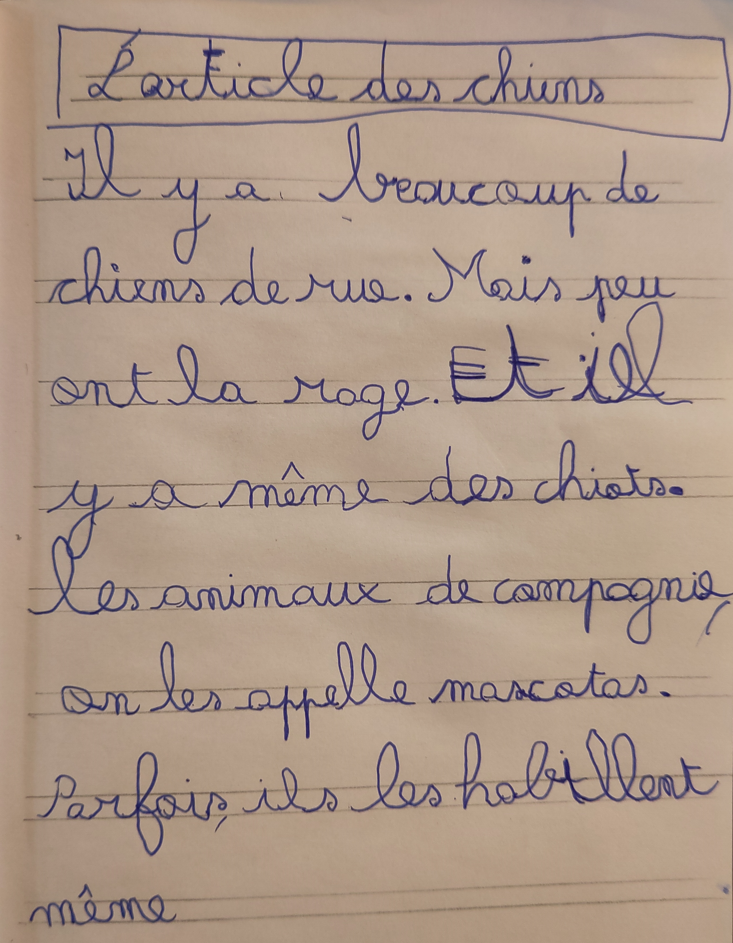 L'article des chiens
Il y a beaucoup de
chiens de rue. Mais peu
ont la rage. Et il
y a même des chiots.
Les animaux de compagnie,
on les appelle mascotas.
Parfois, ils les habillent
même